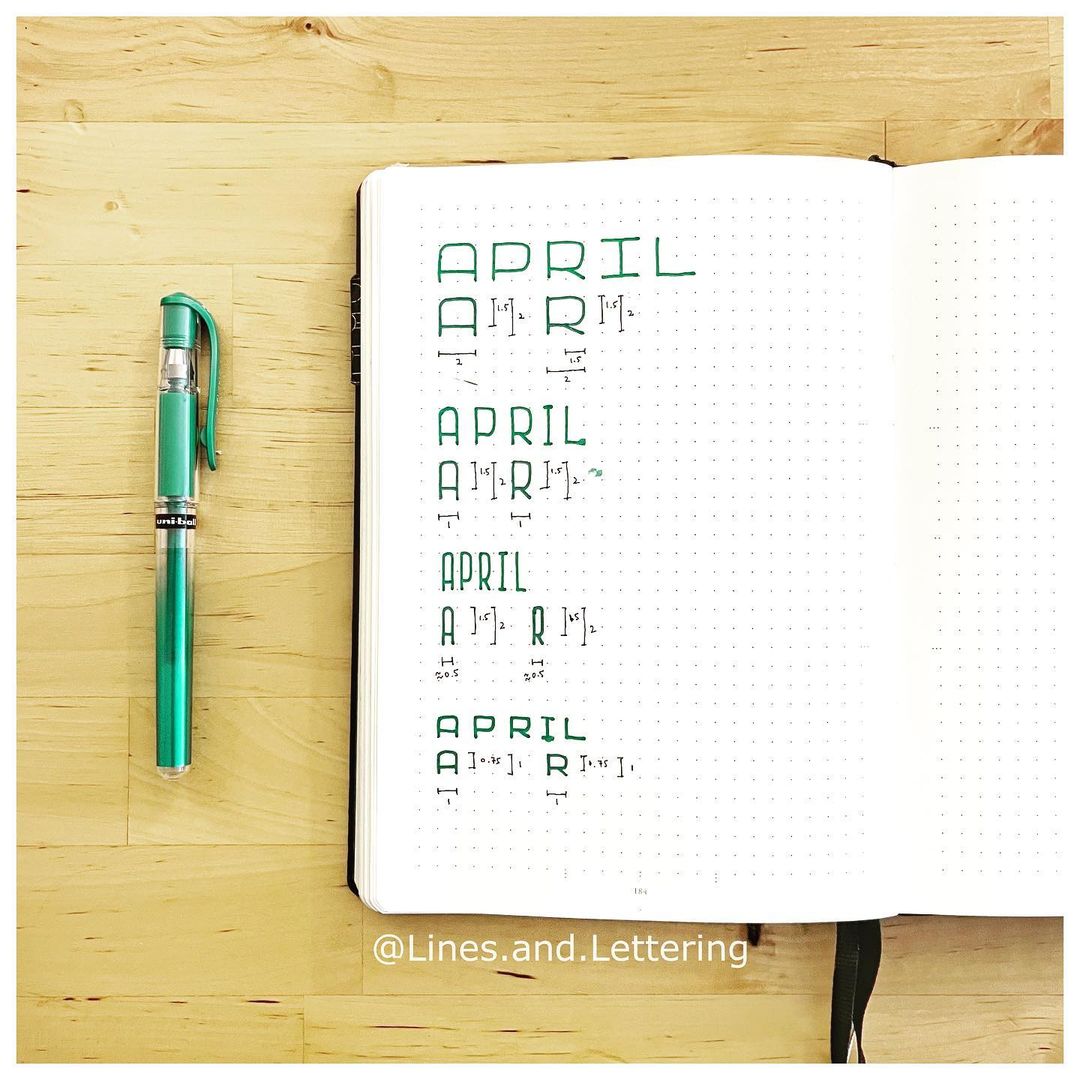 uni-ball
APRIL
A 1.5 2 R 1.5 2
2 1.5
2
APRIL
A 1.5 2 R 1.5 2
1 1
APRIL
A 1.5 2 R 1.5 2
≈0.5 ≈0.5
APRIL
A 0.75 1 R 0.75 1
1 1
184
@Lines.and.Lettering